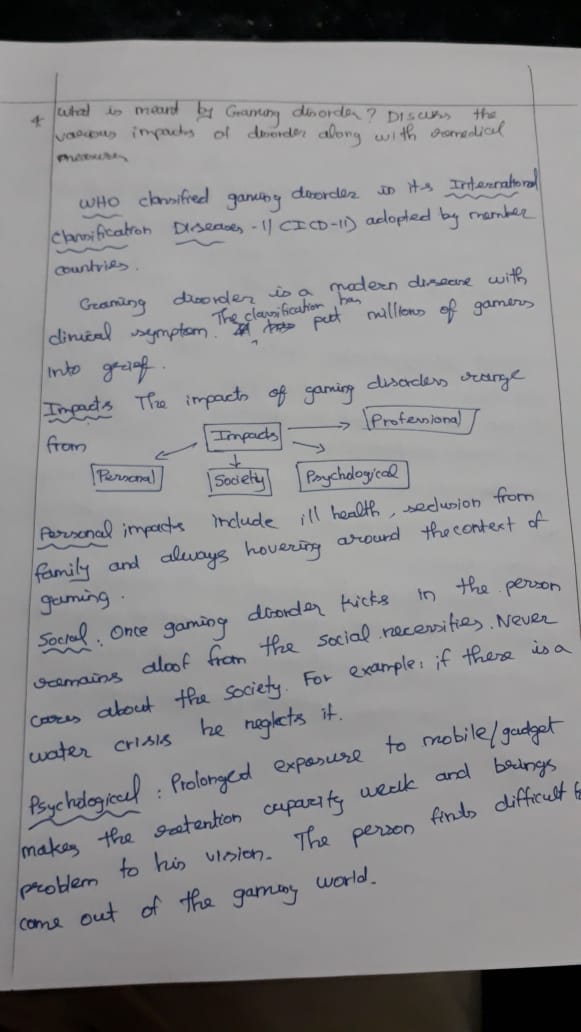 4 What is meant by Gaming disorder? Discuss the
various impacts of disorder along with remedial
measures
WHO classified gaming disorder in its International
Classification Diseases - 11 (ICD-11) adopted by member
countries.
Gaming disorder is a modern disease with
clinical symptom. The classification has put millions of gamers
into grief.
Impacts The impacts of gaming disorders range
from
Impacts
Professional
Personal
Society
Psychological
Personal impacts include ill health, seclusion from
family and always hovering around the context of
gaming.
Social: Once gaming disorder kicks in the person
remains aloof from the social necessities. Never
cares about the society. For example: if there is a
water crisis he neglects it.
Psychological: Prolonged exposure to mobile/gadget
makes the retention capacity weak and brings
problem to his vision. The person finds difficult
come out of the gaming world.